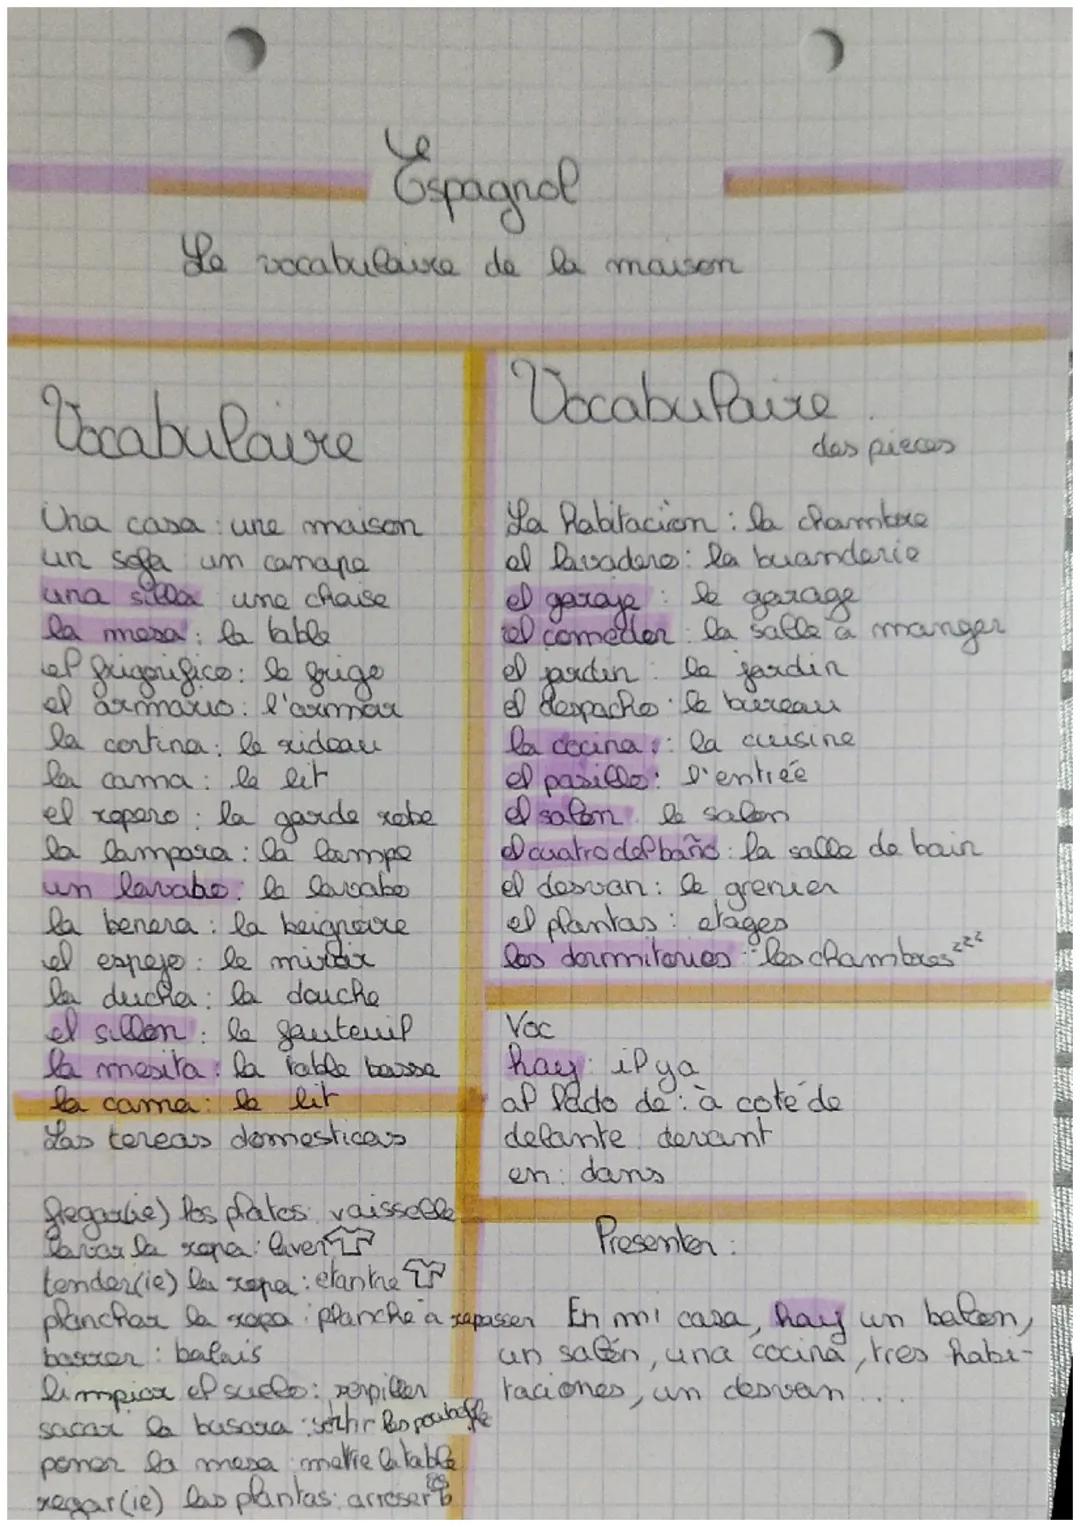 Espagnol
Le vocabulaire de la maison
Vocabulaire
Una casa : une maison
un sofa un canape
una silla une chaise
la mesa : la table
el frigorifico : le frigo
el armario : l'armoir
la cortina : le rideau
la cama : le lit
el ropero : la garde robe
la lampara : la lampe
un lavabo : le lavabo
la benera : la beignoire
el espejo : le miroir
la ducha : la douche
el sillon : le fauteuil
la mesita : la table basse
la cama : le lit
Las tereas domesticas
fregar(ie) los platos : vaisselle
lavar la ropa : laver
tender(ie) la ropa : etantre
planchar la ropa : planche à repasser
barrer : balais
limpiar el suelo : serpiller
sacar la basura : sortir les poubelle
poner la mesa : metre la table
regar(ie) las plantas : arroser
Vocabulaire
des pieces
La habitacion : la chambre
el lavadero : la buanderie
el garaje : le garage
el comedor : la salle à manger
el jardin : le jardin
el despacho : le bureau
la cocina : la cuisine
el pasillo : l'entrée
el salon : le salon
el cuatro del baño : la salle de bain
el desvan : le grenier
el plantas : etages
los dormitorios : les chambres zzz
Voc
hay : il ya
al lado de : à coté de
delante : devant
en : dans
Presenter :
En mi casa, hay un balcon,
un salón, una cocina, tres habi-
taciones, un desvan ...